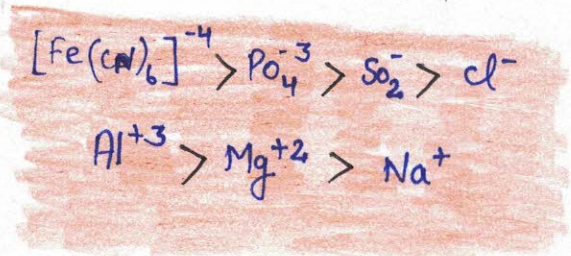 [Fe(CN)₆]⁻⁴ > PO₄⁻³ > SO₂⁻ > Cl⁻
Al⁺³ > Mg⁺² > Na⁺